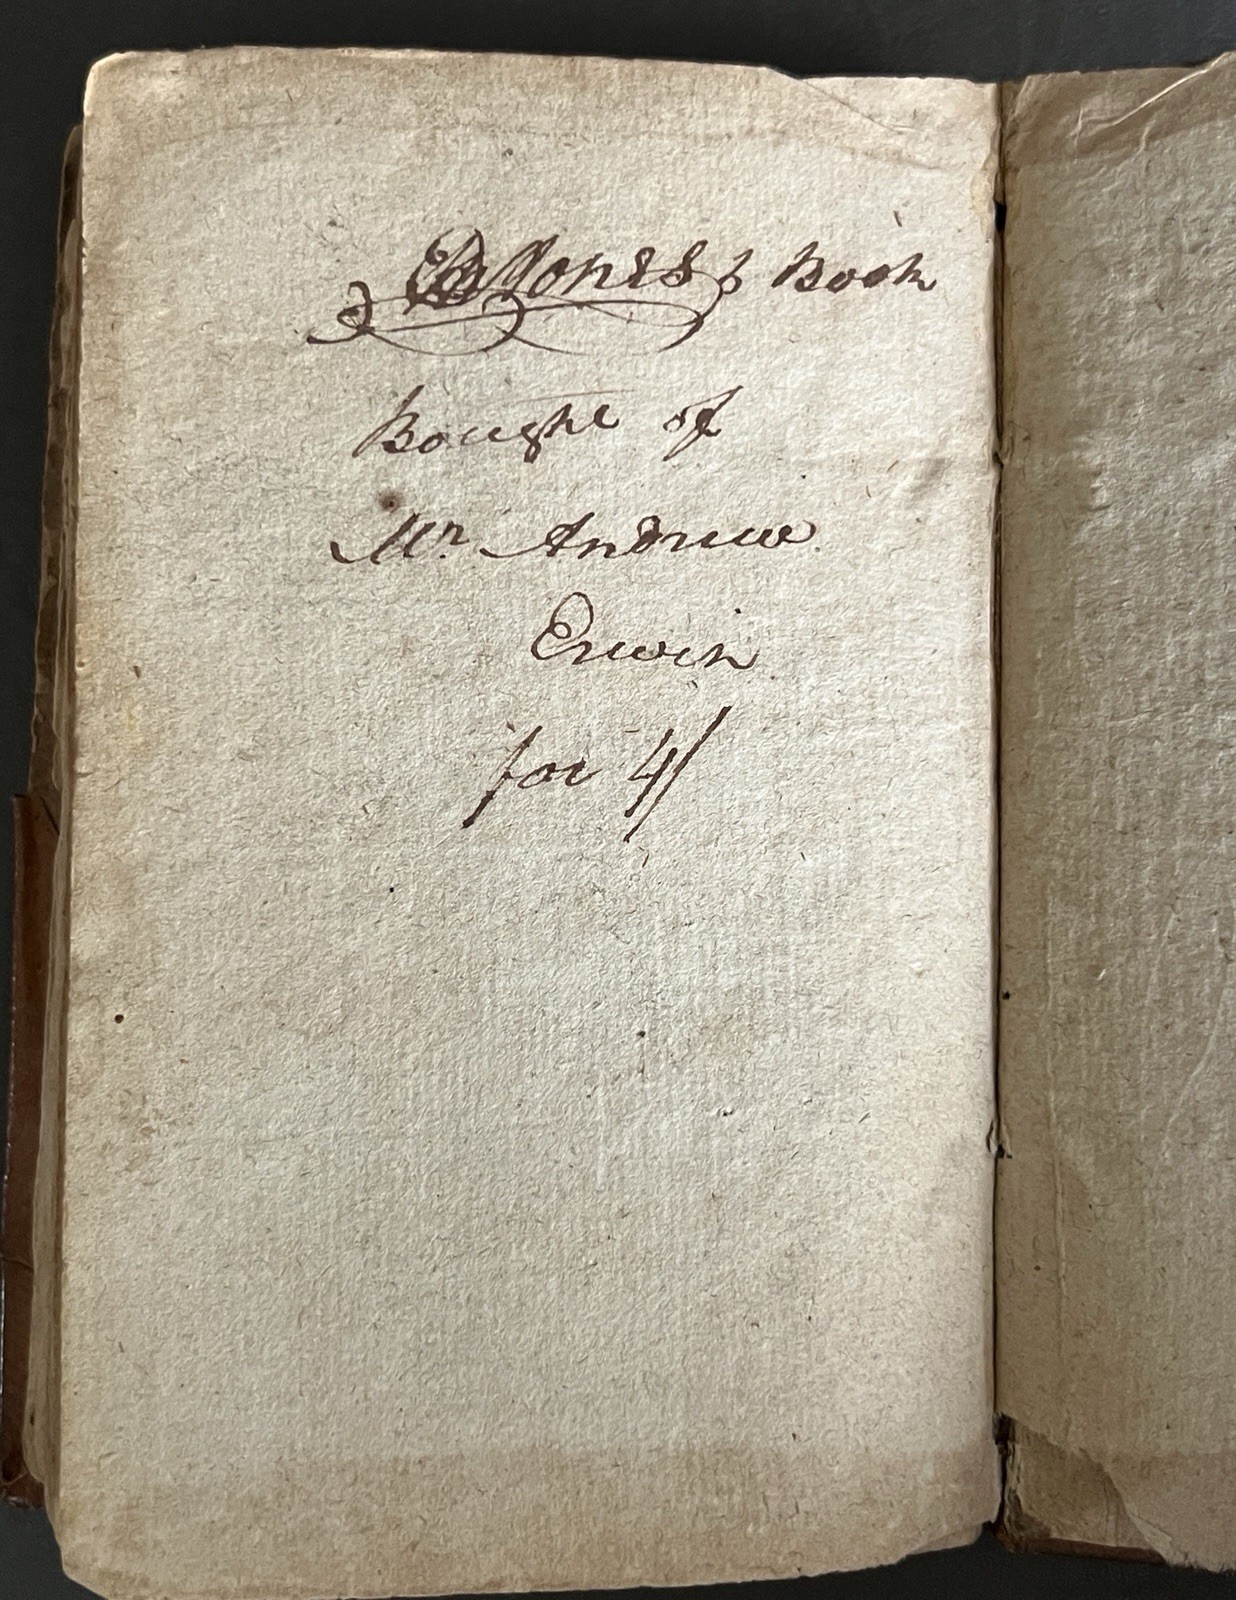 Joness Book
Bought of
Mr. Andrew
Erwin
for 4/